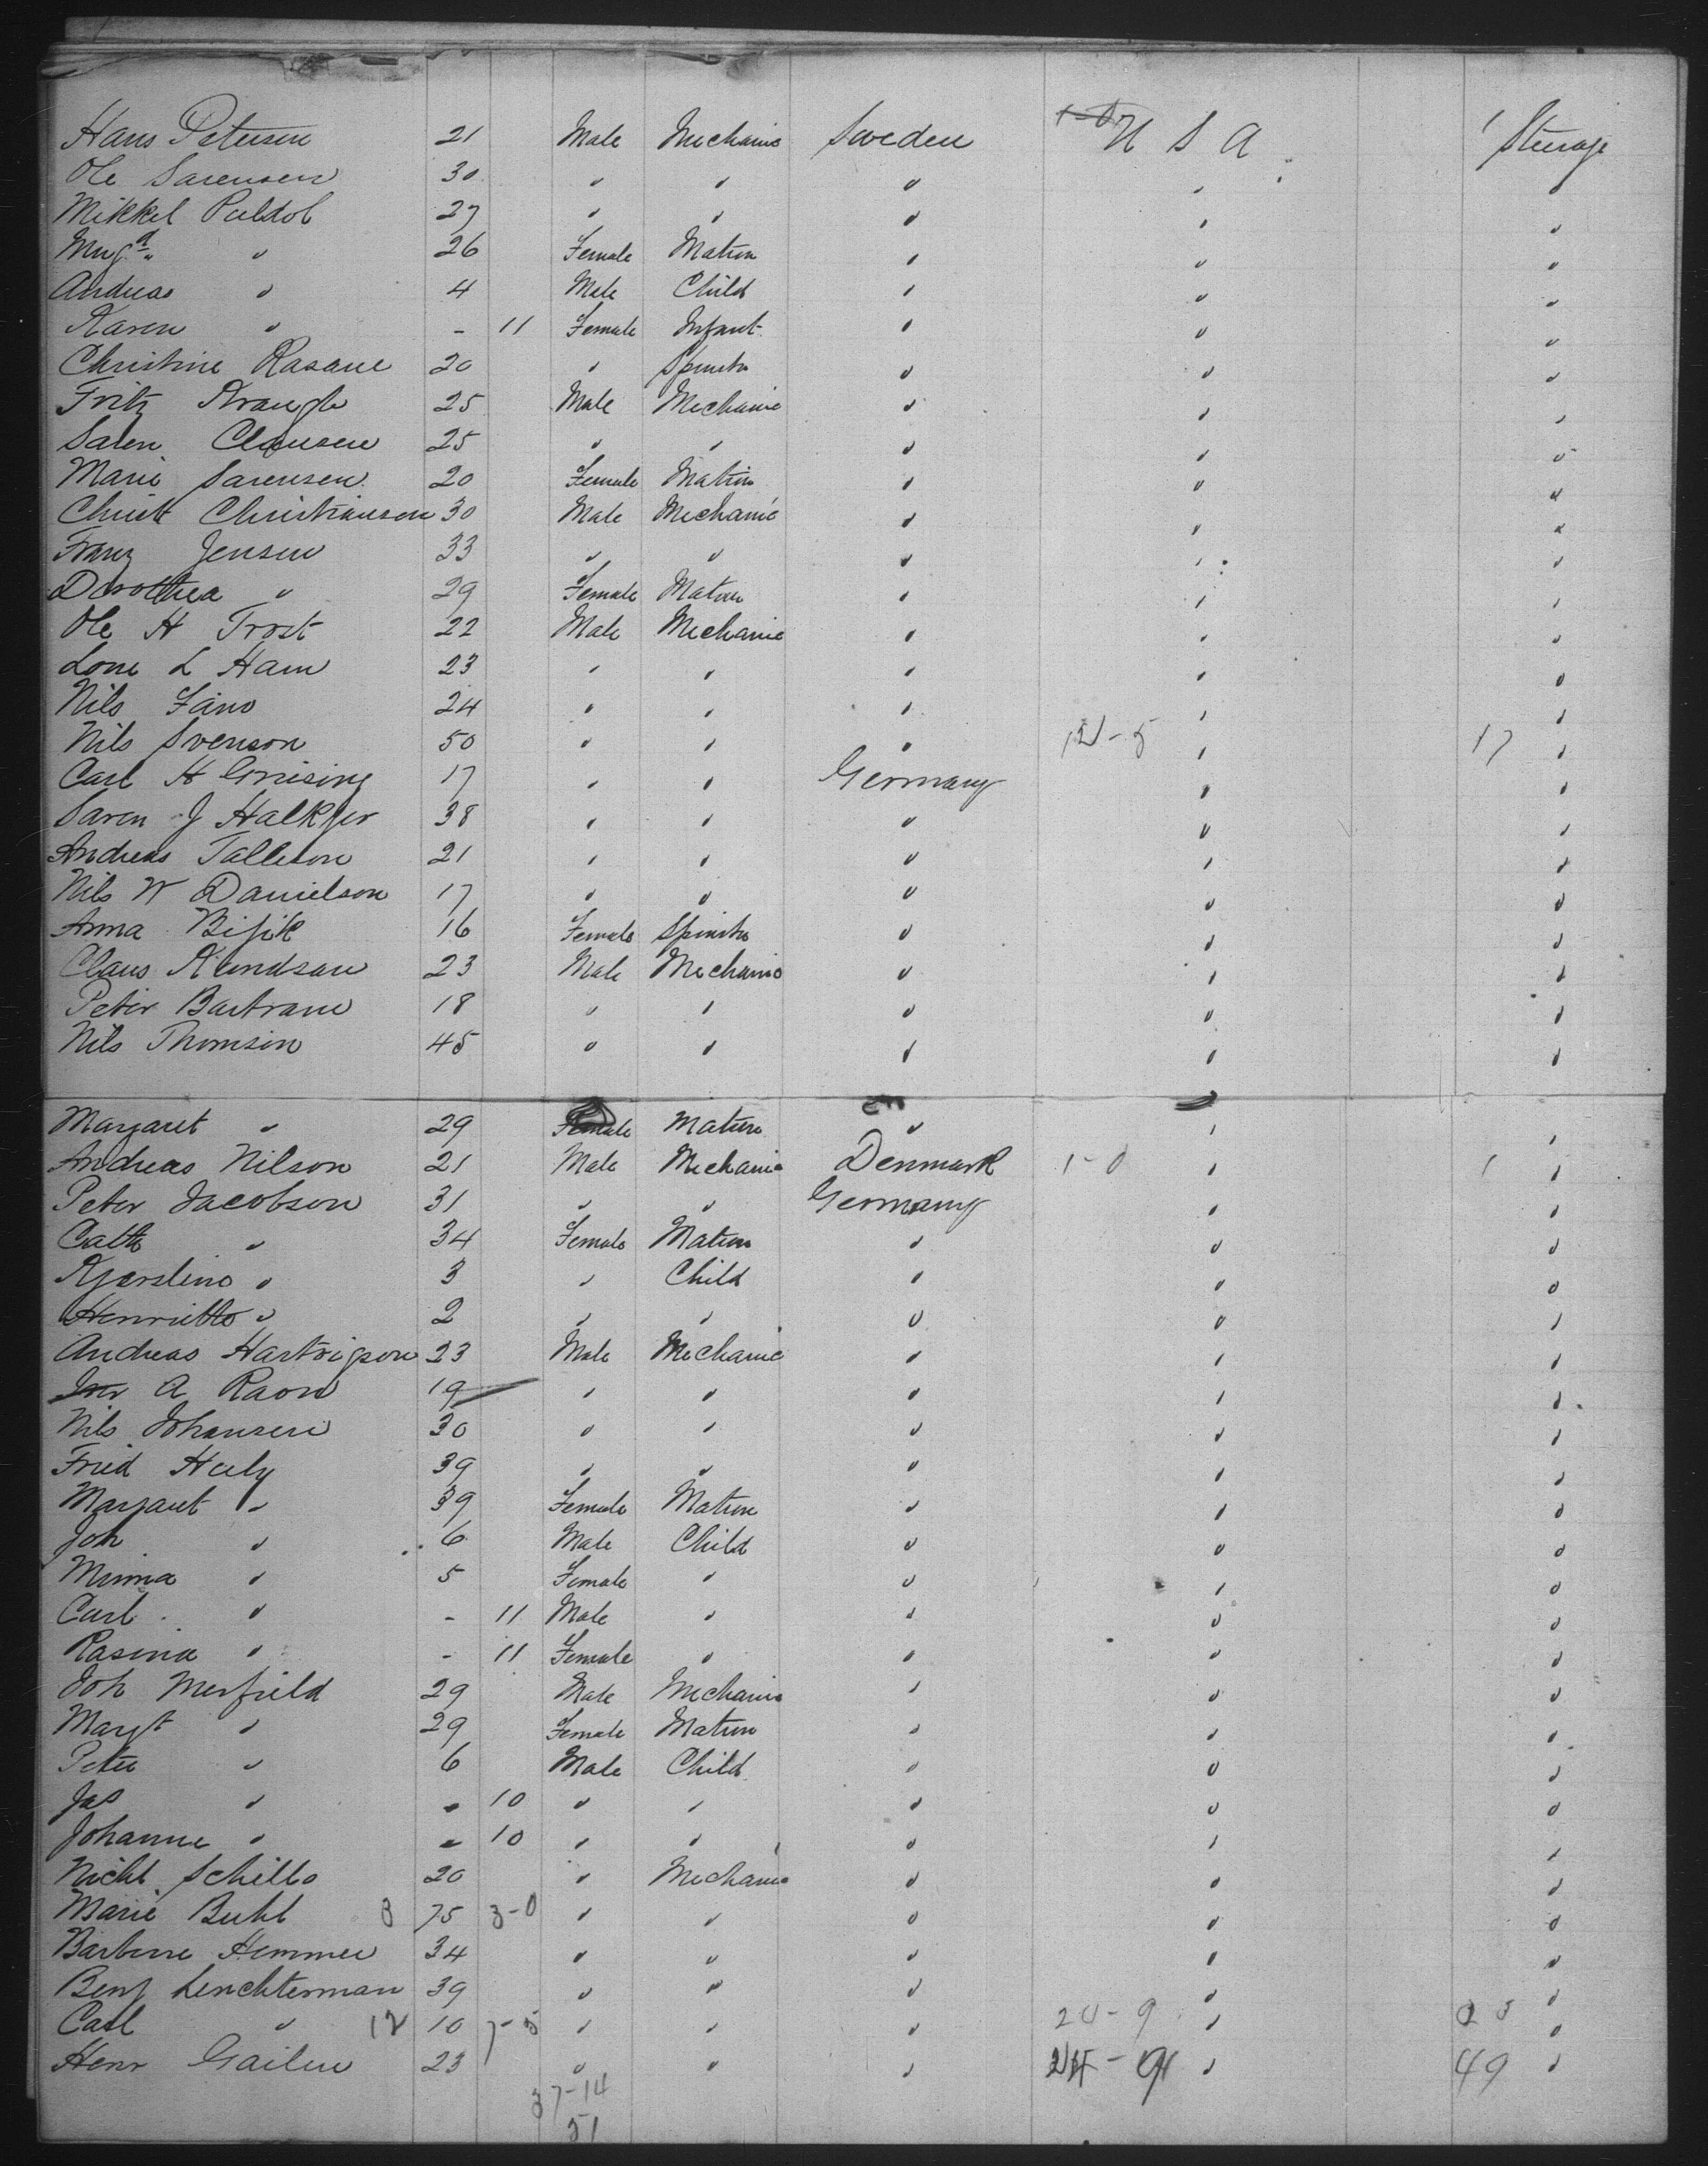 Hans Petersen 21 Male Mechanic Sweden U S A 1 Steerage
Ole Sarensen 30 " " " " "
Mikkel Paldob 27 " " " " "
" 26 Female Matron " " "
Andreas " 4 Male Child " " "
Karen " - 11 Female Infant " " "
Christine Rasane 20 " Spinstr " " "
Fritz 25 Male Mechanic " " "
Saren Clausen 25 " " " " "
Marie Sarensen 20 Female Matron " " "
Christ Christiansen 30 Male Mechanic " " "
Franz Jensen 33 " " " " "
Dorothea " 29 Female Matron " " "
Ole H Trost 22 Male Mechanic " " "
Lone L Ham 23 " " " " "
Nils Fano 24 " " " " "
Nils Svenson 50 " " " 12-5 " 17 "
Carl H 17 " " Germany " "
Saren J Halkjer 38 " " " " "
Andreas Talleson 21 " " " " "
Nils W Danielson 17 " " " " "
Anna 16 Female Spinstr " " "
Claus Kundsan 23 Male Mechanic " " "
Peter Bartram 18 " " " " "
Nils Thomsen 45 " " " " "
Margaret " 29 Female Matron " " "
Andreas Nilson 21 Male Mechanic Denmark 1-0 " 1 "
Peter Jacobson 31 " " Germany " "
Cath " 34 Female Matron " " "
Kjerstino " 3 " Child " " "
Henriette " 2 " " " " "
Andreas Hartrigson 23 Male Mechanic " " "
A Raon 19 " " " " "
Nils Johansen 30 " " " " "
Fried Haly 39 " " " " "
Margaret " 39 Female Matron " " "
Joh " 6 Male Child " " "
Minna " 5 Female " " " "
Carl " - 11 Male " " " "
Rasina " - 11 Female " " " "
Joh Merfield 29 Male Mechanic " " "
Margt " 29 Female Matron " " "
Peter " 6 Male Child " " "
Jas " - 10 " " " " "
Johanne " - 10 " " " " "
Nichl Schills 20 " Mechanic " " "
Marie Buhl 3 75 3-0 " " " " "
Barbara Hemmer 34 " " " " "
Benj Lenchterman 39 " " " " "
Carl " 12 10 7-5 " " " 24-9 "
Henr Gailer 23 " " " 24-9 " 49 "
37-14
51